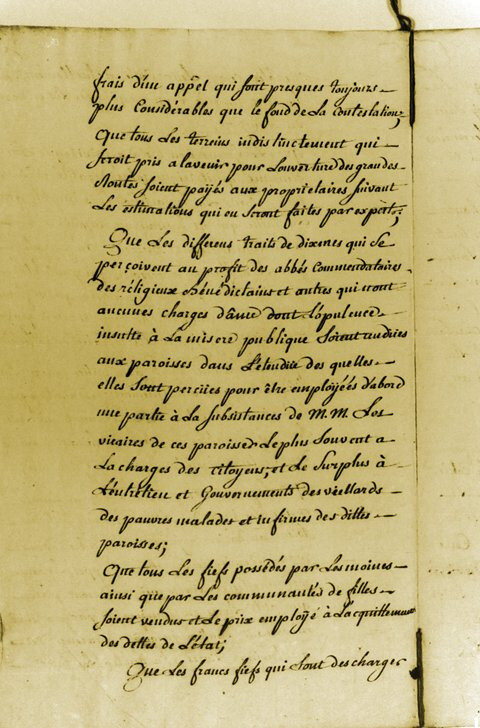 frais d'un appel qui sont presques toujours
plus Considérables que le fond de La Contestation;
Que tous Les terreins indistinctement qui
seroit pris a lavenir pour Louverture des grandes
Routes soient payés aux proprietaires suivant
Les estimations qui en seront faites par expert;
Que Les differens traits de dixmes qui se
perçoivent au profit des abbés Commendataires
des réligieux Bénédictains et autres qui n'ont
aucunes charges d'âme dont L'opulence
insulte à La misere publique Soient rendües
aux paroisses dans L'étendüe des quelles
elles sont percües pour être employéés d'abord
une partie à La subsistances de M.M. Les
vicaires de ces paroisses Le plus souvent a
La charges des Citoyens; et Le Surplus à
L'entretien et Gouvernements des vieillards
des pauvres malades et infirmes des dittes
paroisses;
Que tous Les fiefs possédés par Les moines
ainsi que par Les communautés de filles
soient vendus et Le prix employé à L'acquittement
des dettes de L'état;
Que Les francs fiefs qui sont des charges